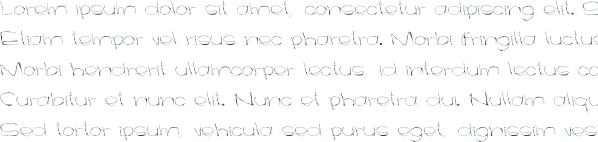 Lorem ipsum dolor sit amet, consectetur adipiscing elit. S
Etiam tempor vel risus nec pharetra. Morbi fringilla luctus
Morbi hendrerit ullamcorper lectus, id interdum lectus co
Curabitur et nunc elit. Nunc et pharetra dui. Nullam aliqu
Sed tortor ipsum, vehicula sed purus eget, dignissim ves